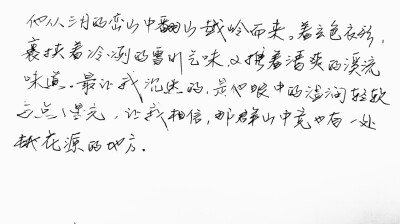 他从三月的峦山中翻山越岭而来。着玄色衣衫,
裹挟着冷冽的雪川气味,又携着清爽的溪流
味道。最让我沉迷的,是他眼中的温润轻软
与点点星光,让我相信,那群山中竟也有一处
桃花源的地方.